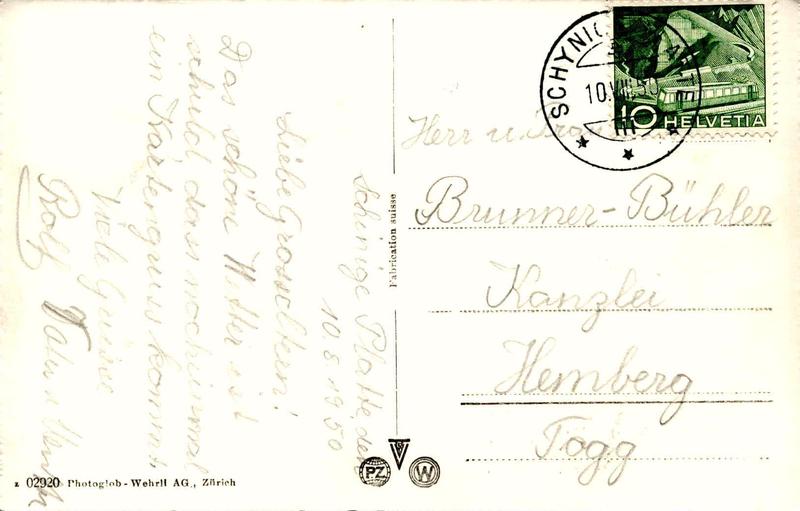 Schinige Platte, den
10.8.1950
Liebe Grosseltern!
Das schöne Wetter ist
schuld dass nocheinmal
ein Kartengruss kommt.
Viele Grüsse
Rolf
Fabrication suisse
SCHYNIGE PLATTE
10.VIII.50
10 HELVETIA
Herr u. Frau
Brunner-Bühler
Kanzlei
Hemberg
Togg
PZ
W
z 02920 Photoglob-Wehrli AG., Zürich